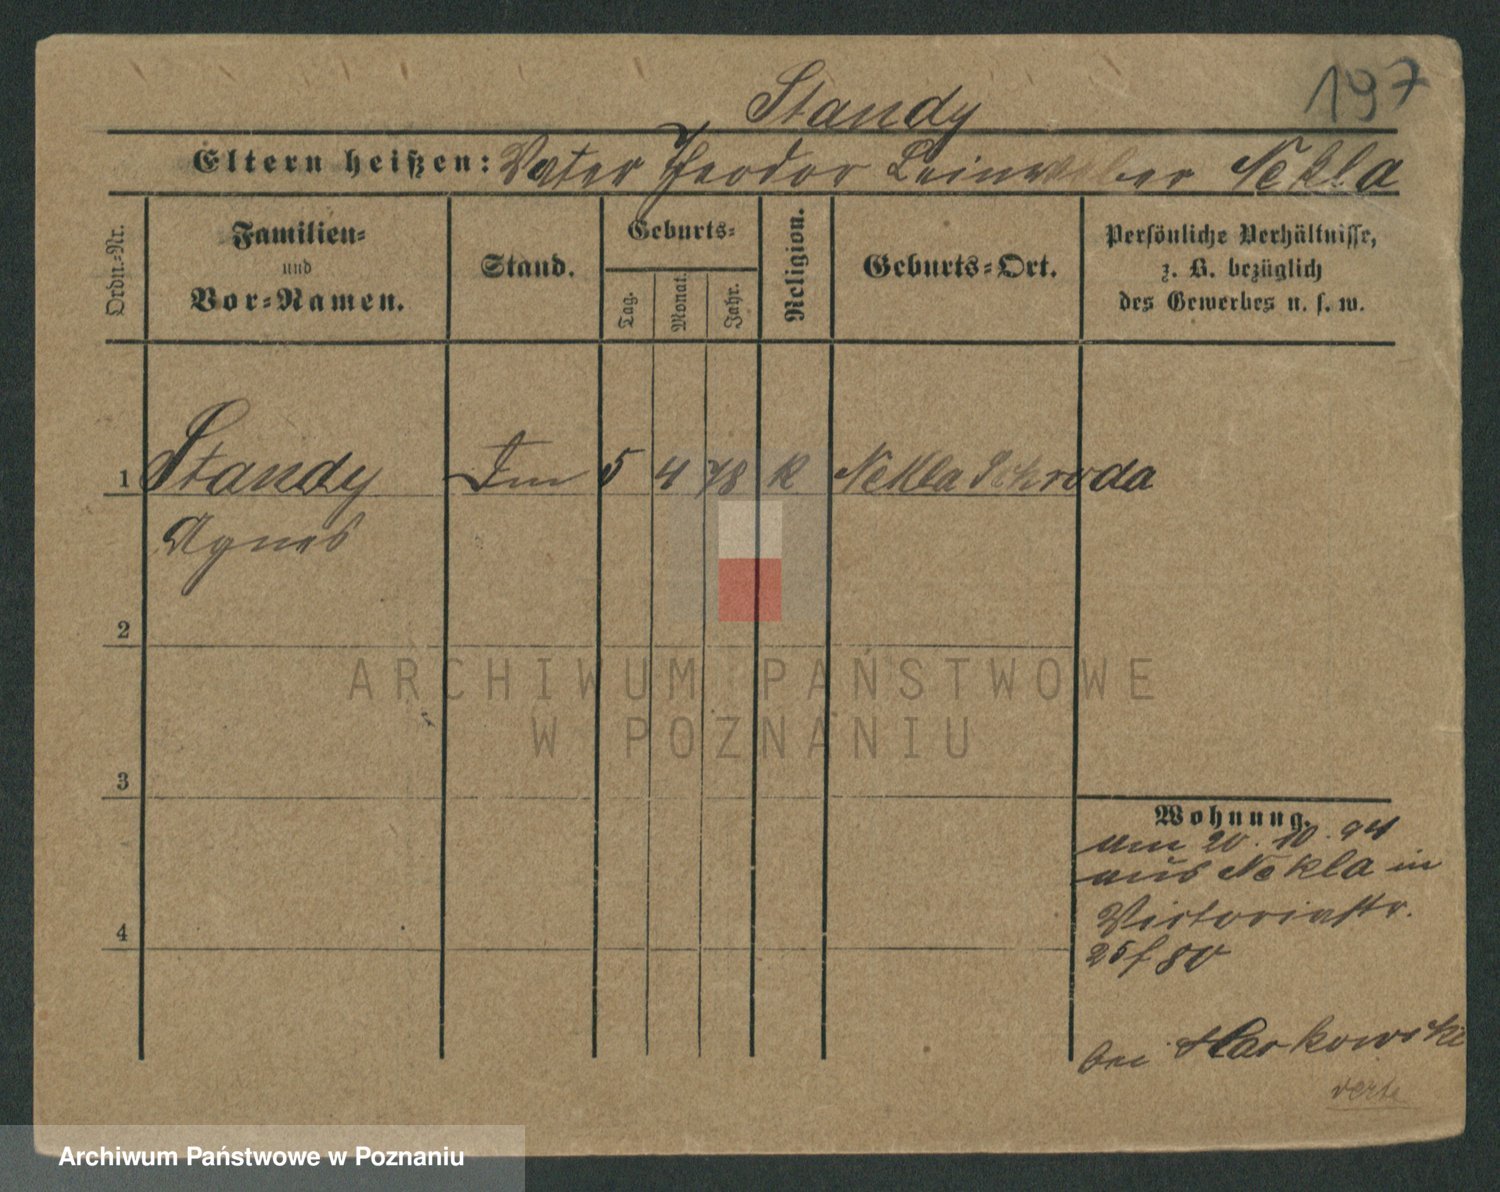 197
Standy
Eltern heißen: Vater Theodor Leinweber Nekla
Ordn.=Nr.
Familien=
und
Vor=Namen.
Stand.
Geburts=
Tag.
Monat.
Jahr.
Religion.
Geburts=Ort.
Persönliche Verhältnisse,
z. B. bezüglich
des Gewerbes u. s. w.
1 Standy 5 4 78 K Nekla Schroda
Agnes
2
3
4
Wohnung.
am 20. 10. 94
aus Nekla in
Victoriastr.
25 f 80
bei
verte
ARCHIWUM PAŃSTWOWE
W POZNANIU
Archiwum Państwowe w Poznaniu